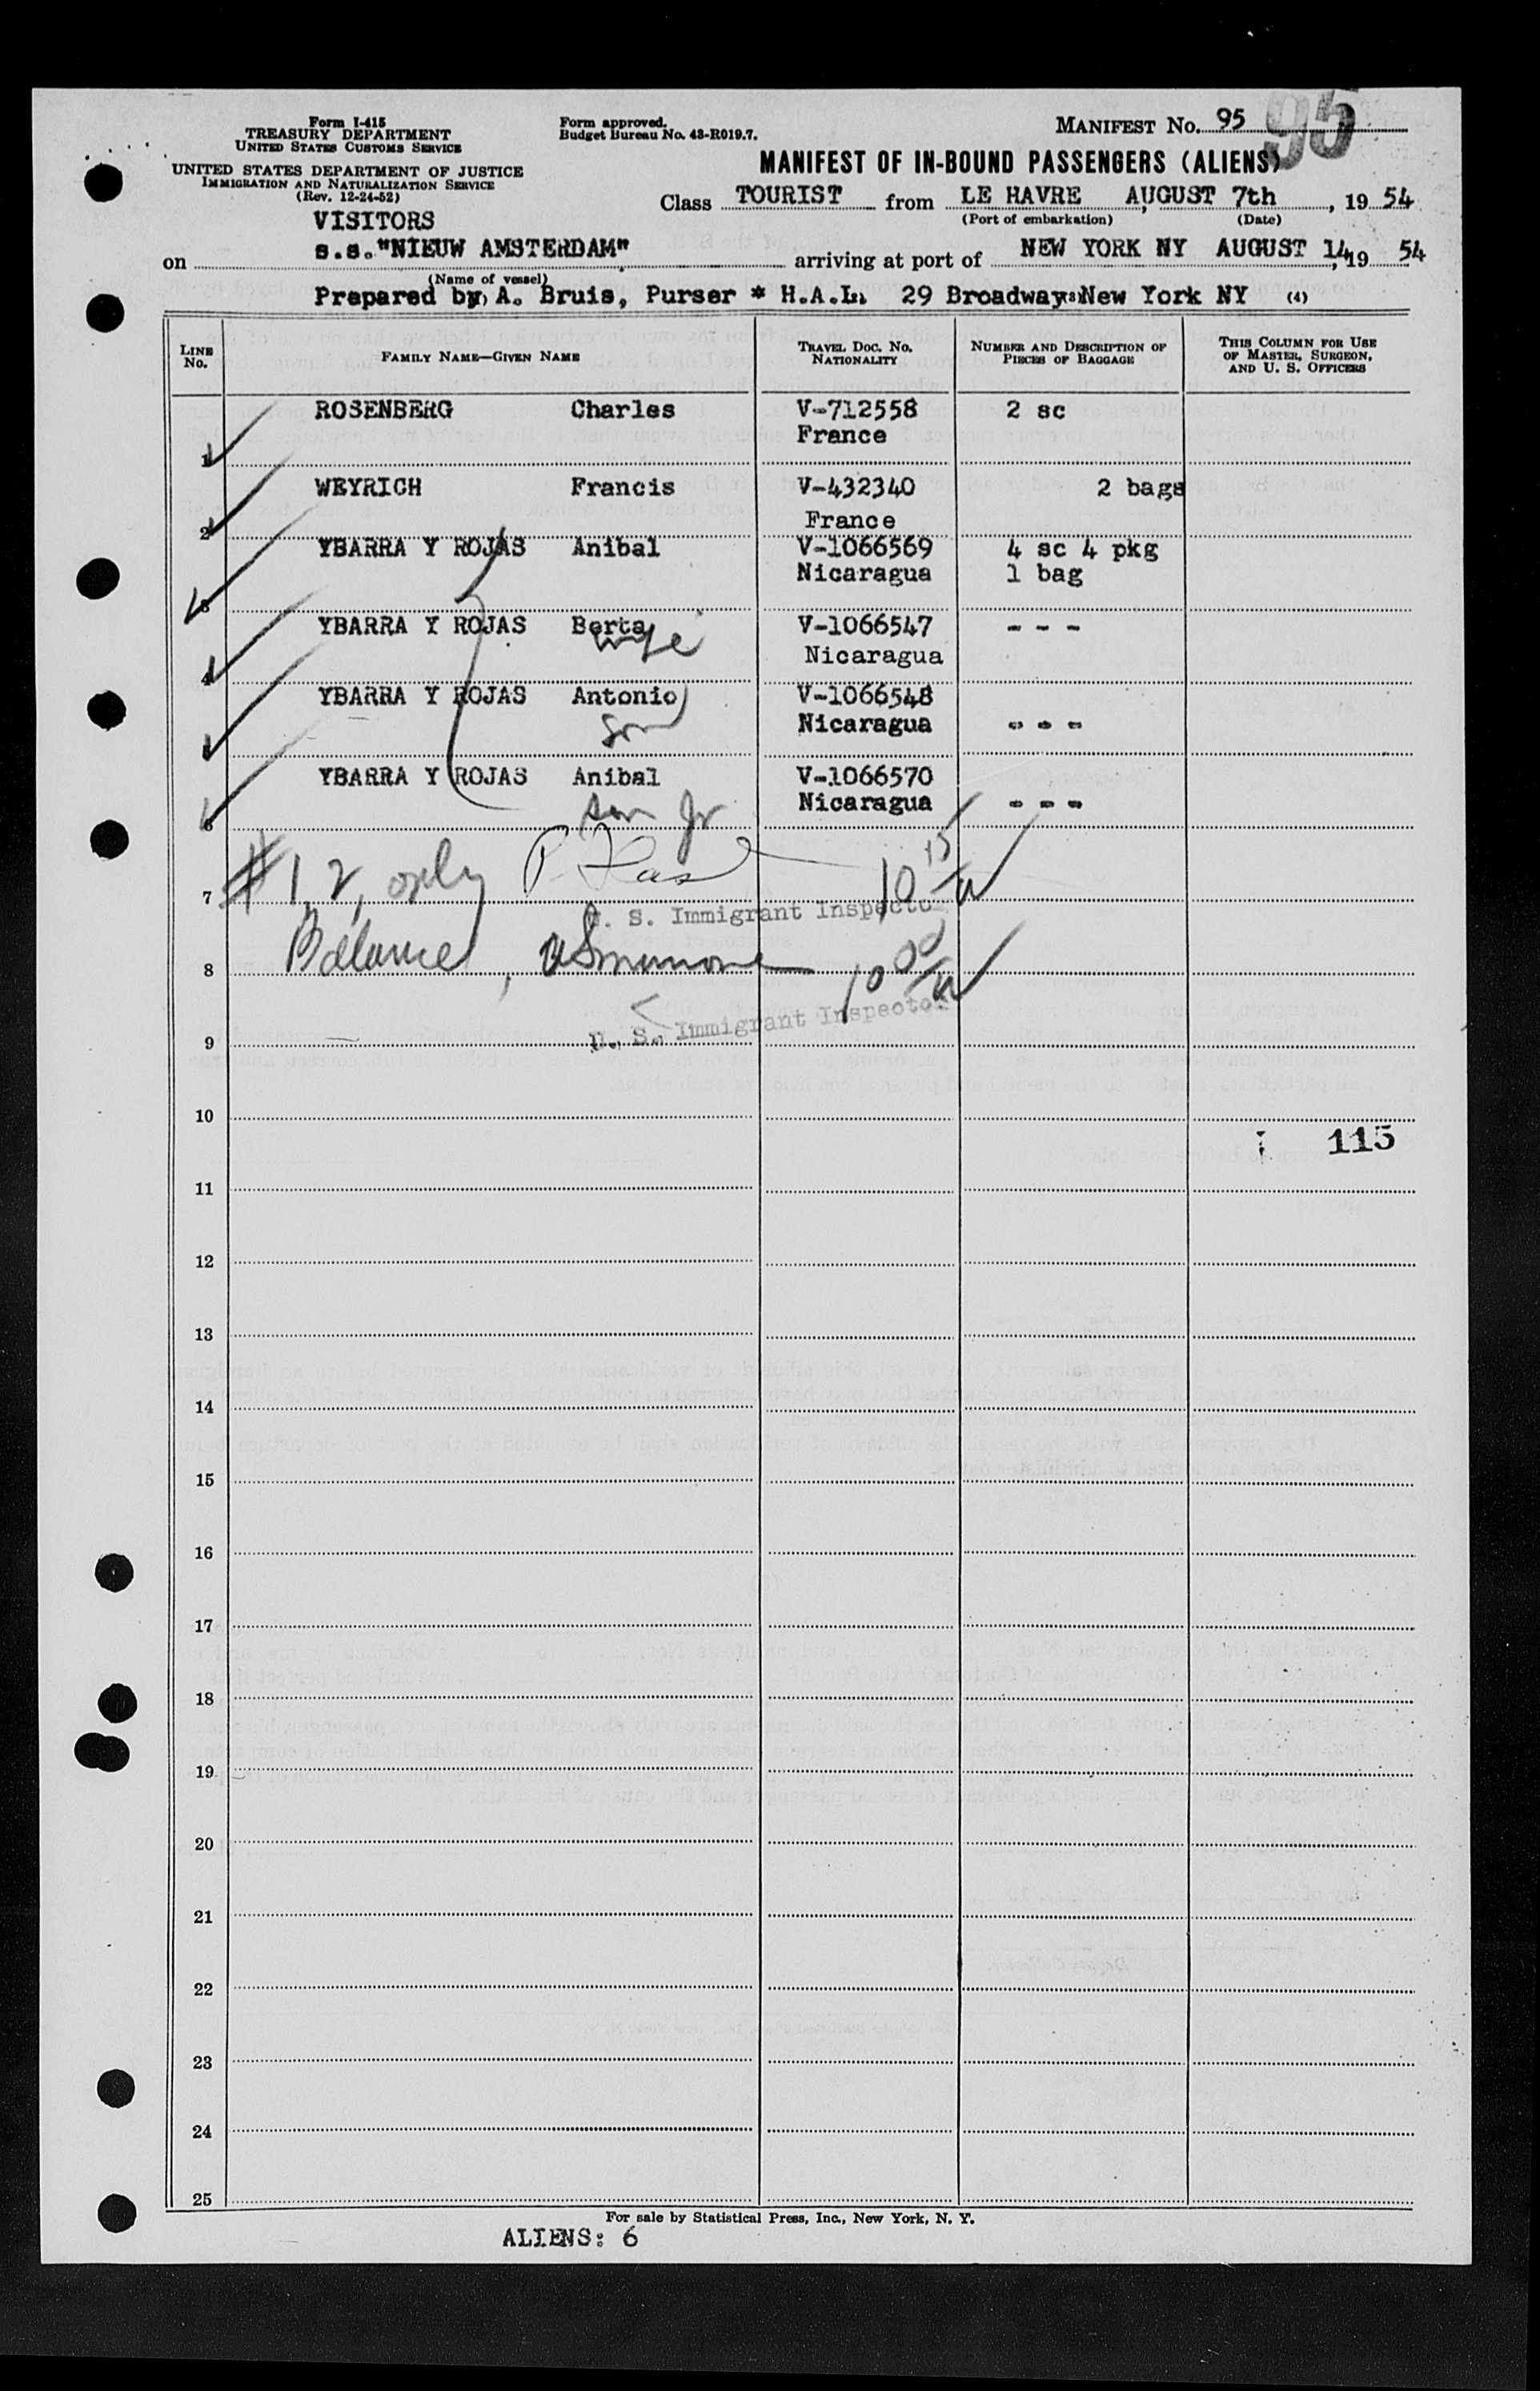 Form I-415
TREASURY DEPARTMENT
UNITED STATES CUSTOMS SERVICE
UNITED STATES DEPARTMENT OF JUSTICE
IMMIGRATION AND NATURALIZATION SERVICE
(Rev. 12-24-52)
Form approved.
Budget Bureau No. 43-R019.7.
MANIFEST NO. 95 95
MANIFEST OF IN-BOUND PASSENGERS (ALIENS)
Class TOURIST from LE HAVRE AUGUST 7th, 19 54
(Port of embarkation) (Date)
VISITORS
on s.s."NIEUW AMSTERDAM" arriving at port of NEW YORK NY AUGUST 14, 19 54
(Name of vessel)
Prepared by A. Bruis, Purser * H.A.L. 29 Broadway New York NY (4)
LINE NO. FAMILY NAME—GIVEN NAME TRAVEL DOC. NO. NATIONALITY NUMBER AND DESCRIPTION OF PIECES OF BAGGAGE THIS COLUMN FOR USE OF MASTER, SURGEON, AND U. S. OFFICERS
ROSENBERG Charles V-712558 2 sc
1 France
WEYRICH Francis V-432340 2 bags
2 France
YBARRA Y ROJAS Anibal V-1066569 4 sc 4 pkg
Nicaragua 1 bag
3
YBARRA Y ROJAS Berta V-1066547 - - -
wife
4 Nicaragua
YBARRA Y ROJAS Antonio V-1066548
son Nicaragua - - -
5
YBARRA Y ROJAS Anibal V-1066570
son Jr Nicaragua - - -
6
#1, 2, only 10 15
7 U. S. Immigrant Inspector
Balance, 10 00
8
9 U. S. Immigrant Inspector
10
115
11
12
13
14
15
16
17
18
19
20
21
22
23
24
25
For sale by Statistical Press, Inc., New York, N. Y.
ALIENS: 6